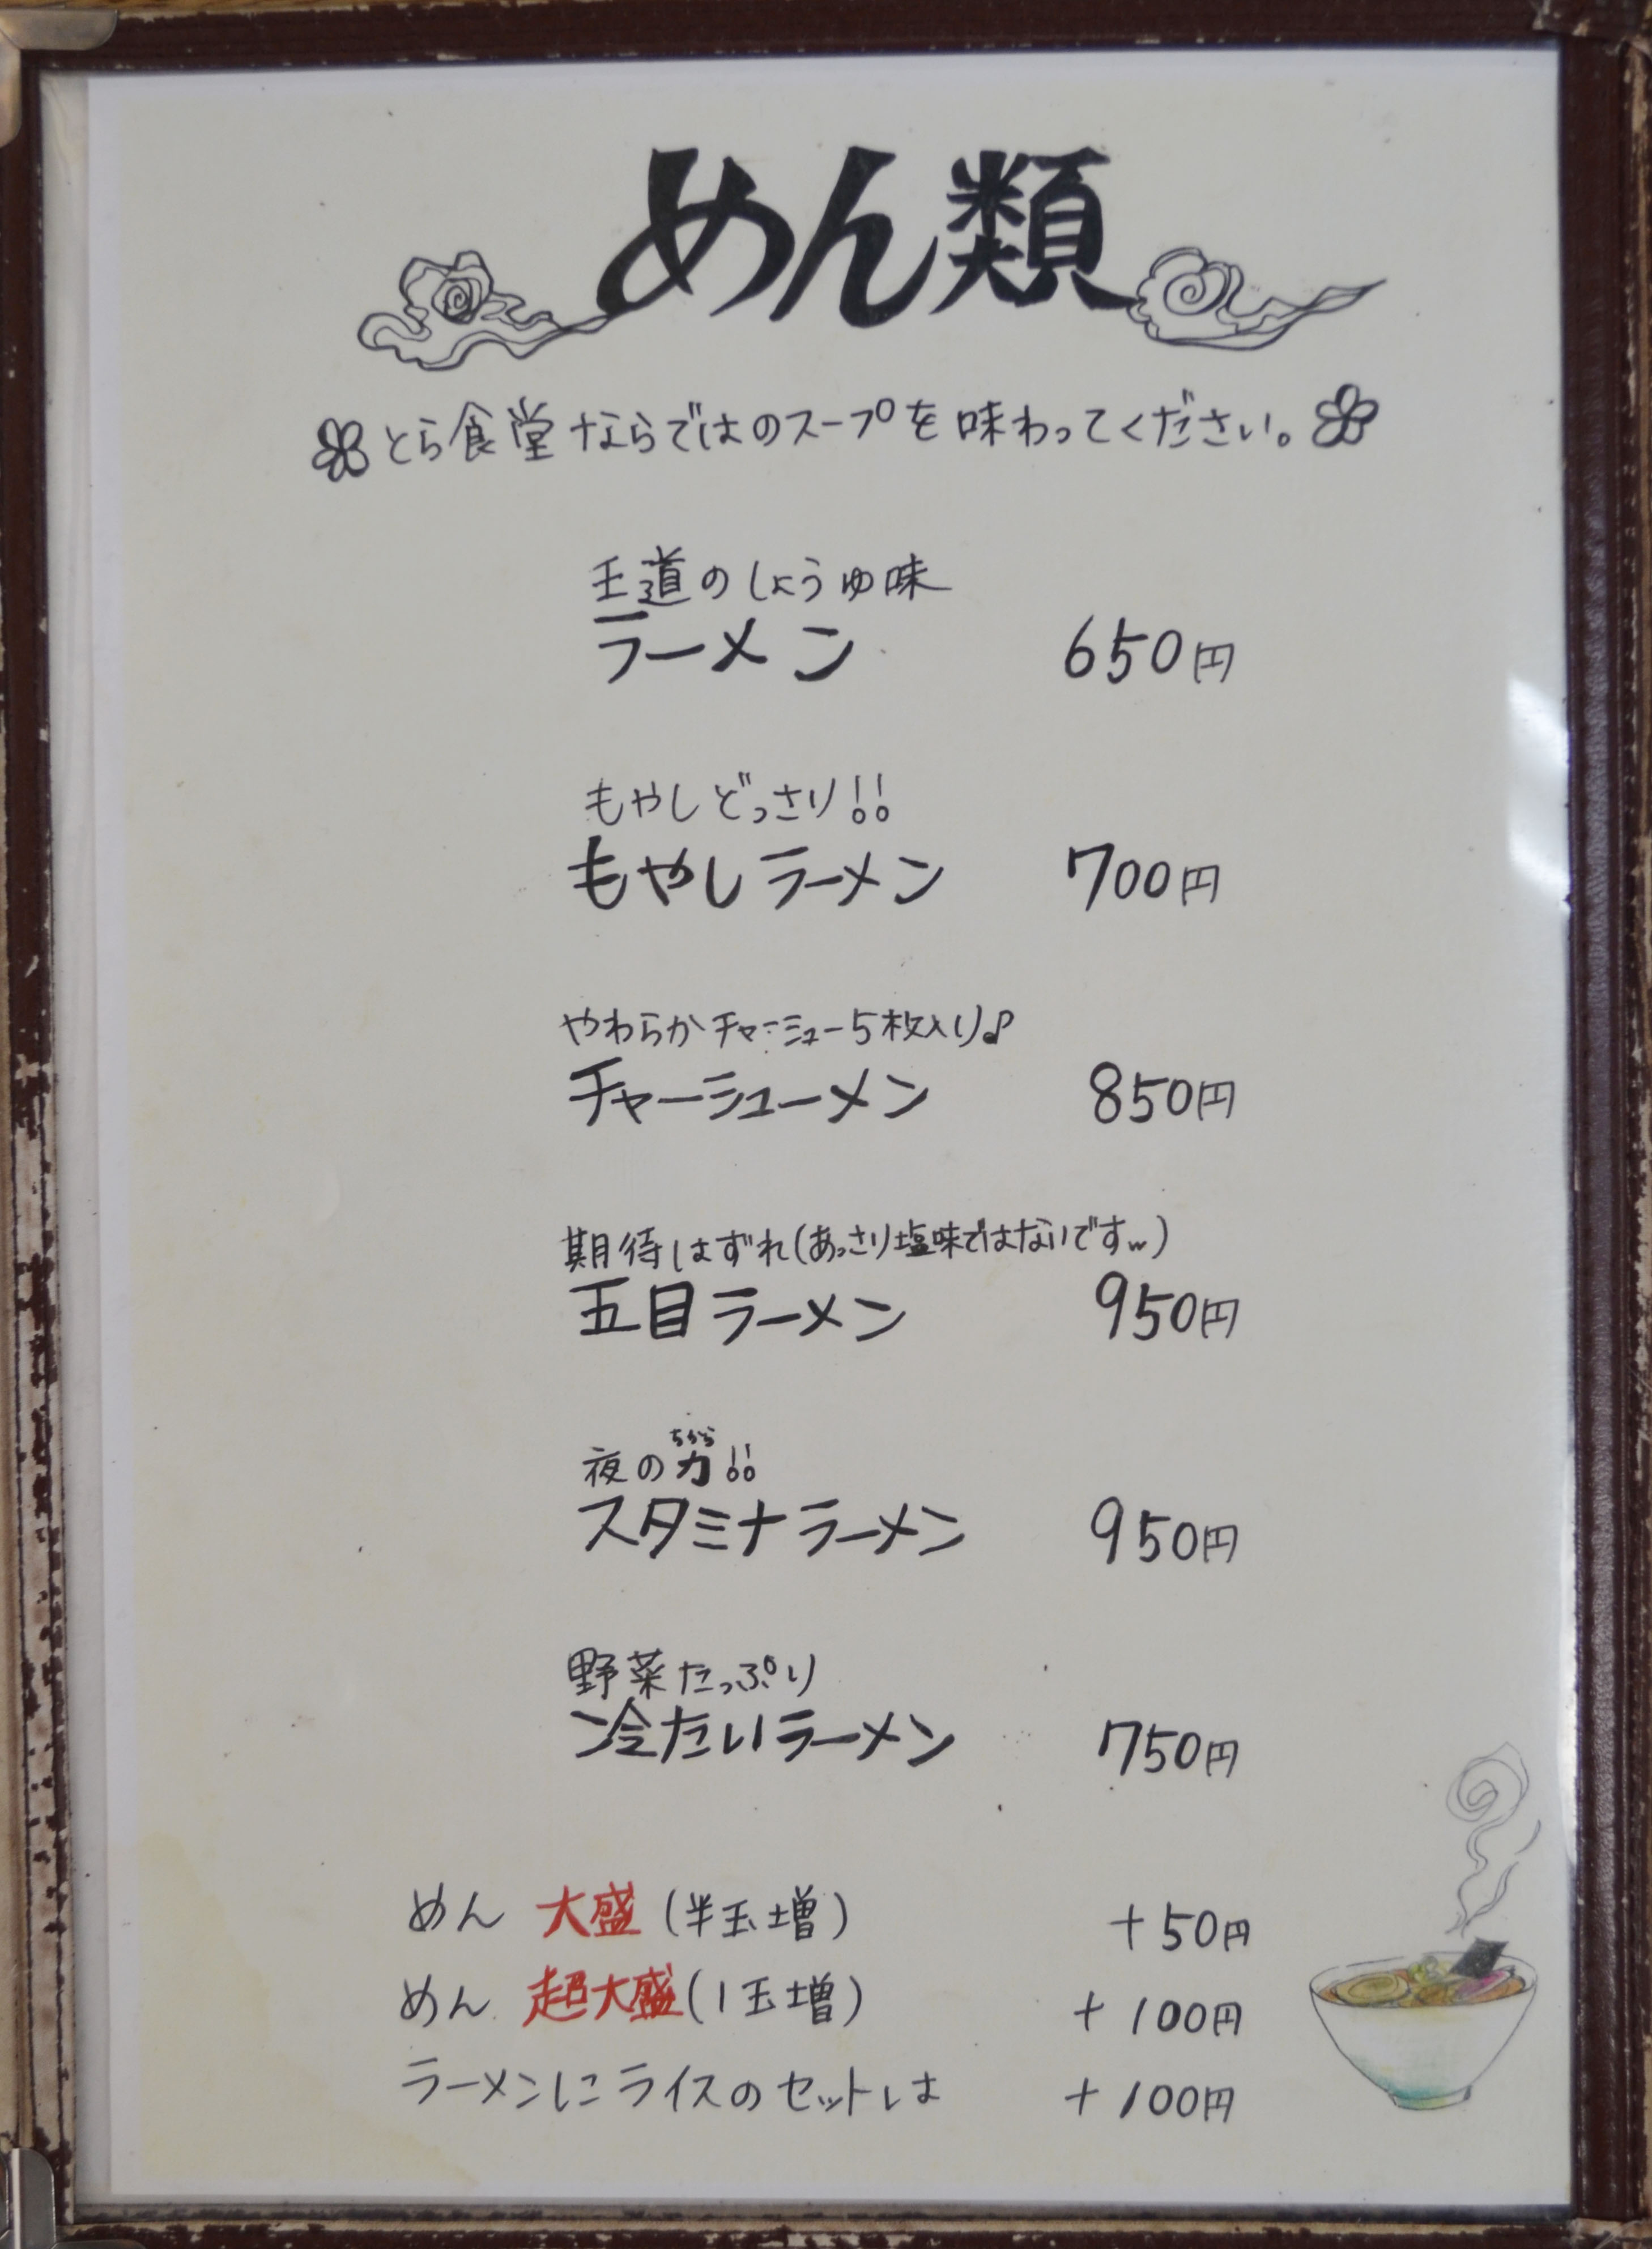 めん類
とら食堂ならではのスープを味わってください。
王道のしょうゆ味
ラーメン 650円
もやしどっさり!!
もやしラーメン 700円
やわらかチャーシュー5枚入り♪
チャーシューメン 850円
期待はずれ(あっさり塩味ではないですw)
五目ラーメン 950円
ちから
夜の力!!
スタミナラーメン 950円
野菜たっぷり
冷たいラーメン 750円
めん 大盛(半玉増) +50円
めん 超大盛(1玉増) +100円
ラーメンにライスのセットは +100円